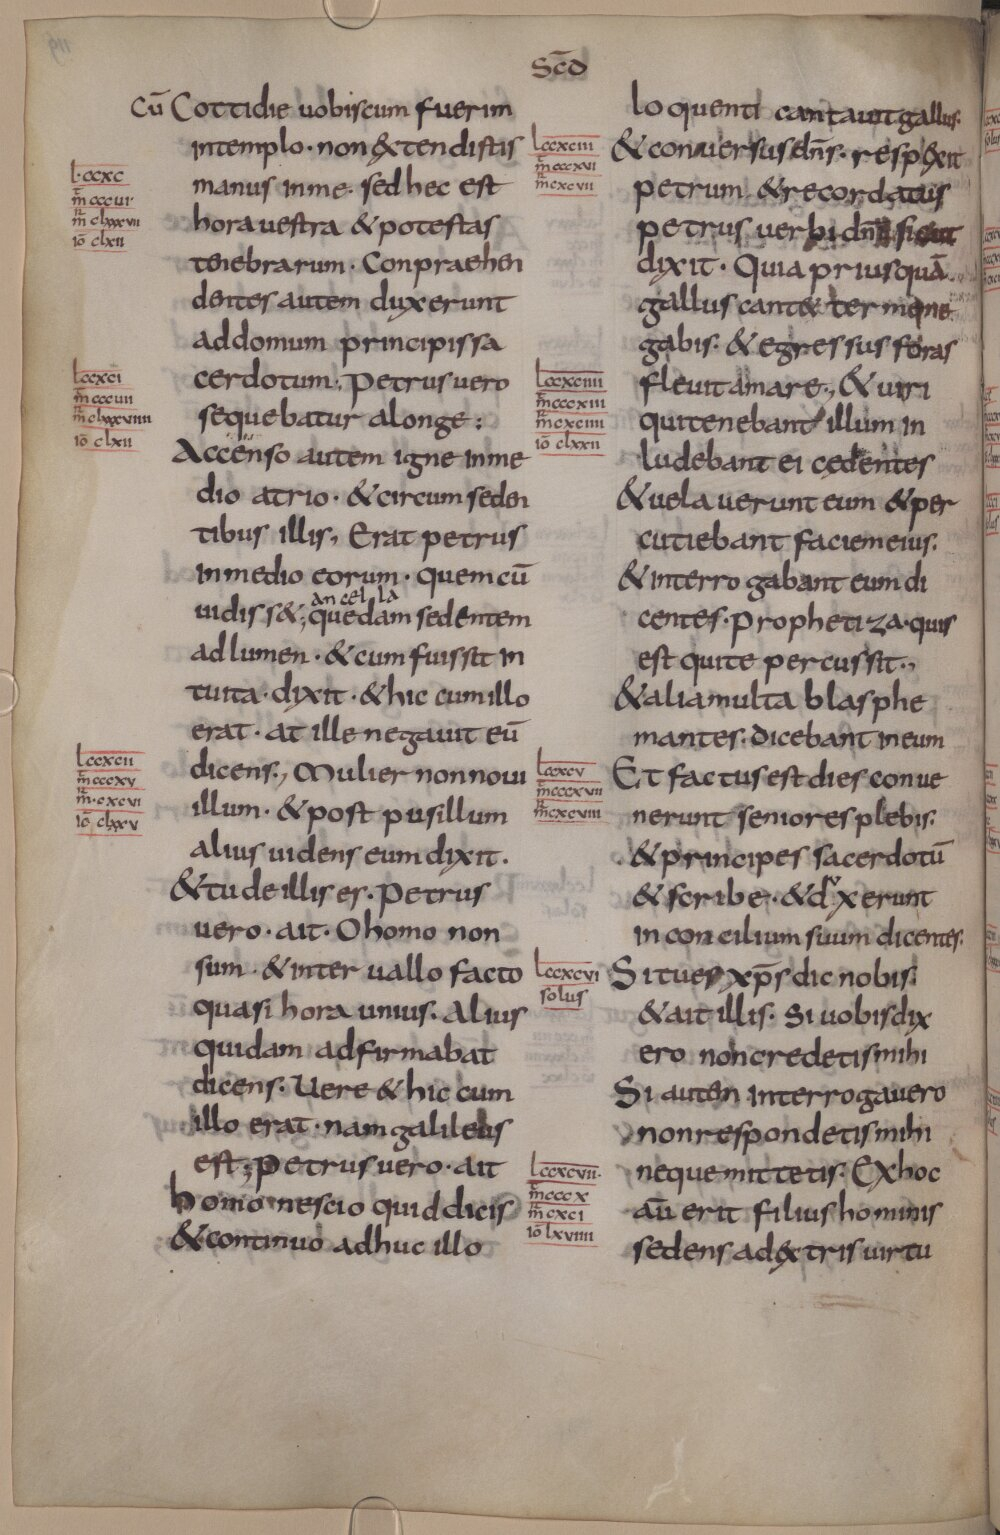 Scd̄
Cū Cottidie uobiscum fuerim
intemplo · non extendistis
manus inme · sed hec est
hora uestra & potestas
tenebrarum · Conpraehen
dentes autem duxerunt
addomum principissa
cerdotum ; Petrus uero
sequebatur alonge :
Accenso autem igne inme
dio atrio · & circumseden
tibus illis , Erat petrus
inmedio eorum · quem cū
uidiss& ; quedam sedentem
ancella
adlumen · & cum fuissit in
tuita · dixit · & hic cumillo
erat · at ille negauit eū
dicens ., Mulier non noui
illum · & post pusillum
alius uidens eum dixit .
& tu de illis es · Petrus
uero · ait · O homo non
sum · & inter uallo facto
quasi hora unius · Alius
quidam adfirmabat
dicens · Uere & hic cum
illo erat · nam galileus
est ; Petrus uero · ait
homo nescio quid dicis
& continuo adhuc illo
l · ccxc
m̄ clxxxvii
iō clxii
lccxci
m̄ clxxxviiii
iō clxii
lccxcii
m̄ cccxv
m̄ · cxcvi
iō clxxv
loquenti cantauit gallus ·
& conuersus dn̄s · respexit
petrum & recordatus
petrus uerbi dn̄i sicut
dixit · Quia priusquā
gallus cant& ter mene
gabis · & egressus foras
fleuit amare ., & uiri
quitenebant illum in
ludebant ei cedentes
& uelauerunt eum & per
cutiebant faciem eius ·
& interrogabant eum di
centes · Prophetiza · quis
est quite percussit .,
& alia multa blasphe
mantes · dicebant in eum
Et factus est dies conue
nerunt seniores plebis ·
& principes sacerdotū
& scribe · & duxerunt
in concilium suum dicentes ·
Si tu es xp̄s dic nobis ·
& ait illis · Si uobis dix
ero non credetis mihi
Si autem interrogauero
non respondetis mihi
neque mittetis · Ex hoc
aū erit filius hominis
sedens adextris uirtu
lccxciii
m̄ cccxvi
m̄ cxcvii
lccxciiii
m̄ cccxiii
m̄ cxciiii
iō clxxii
lccxcv
m̄ cccxvii
m̄ cxcviii
lccxcvi
solus
lccxcvii ·
m̄ cccx
m̄ cxci
iō lxviiii